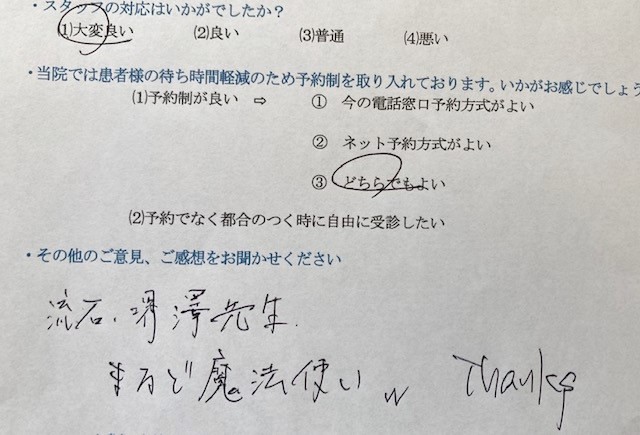 ・スタッフの対応はいかがでしたか？
(1)大変良い (2)良い (3)普通 (4)悪い
・当院では患者様の待ち時間軽減のため予約制を取り入れております。いかがお感じでしょう
(1)予約制が良い ⇨ ① 今の電話窓口予約方式がよい
② ネット予約方式がよい
③ どちらでもよい
(2)予約でなく都合のつく時に自由に受診したい
・その他のご意見、ご感想をお聞かせください
流石、澤先生.
まるで魔法使い w Thanks